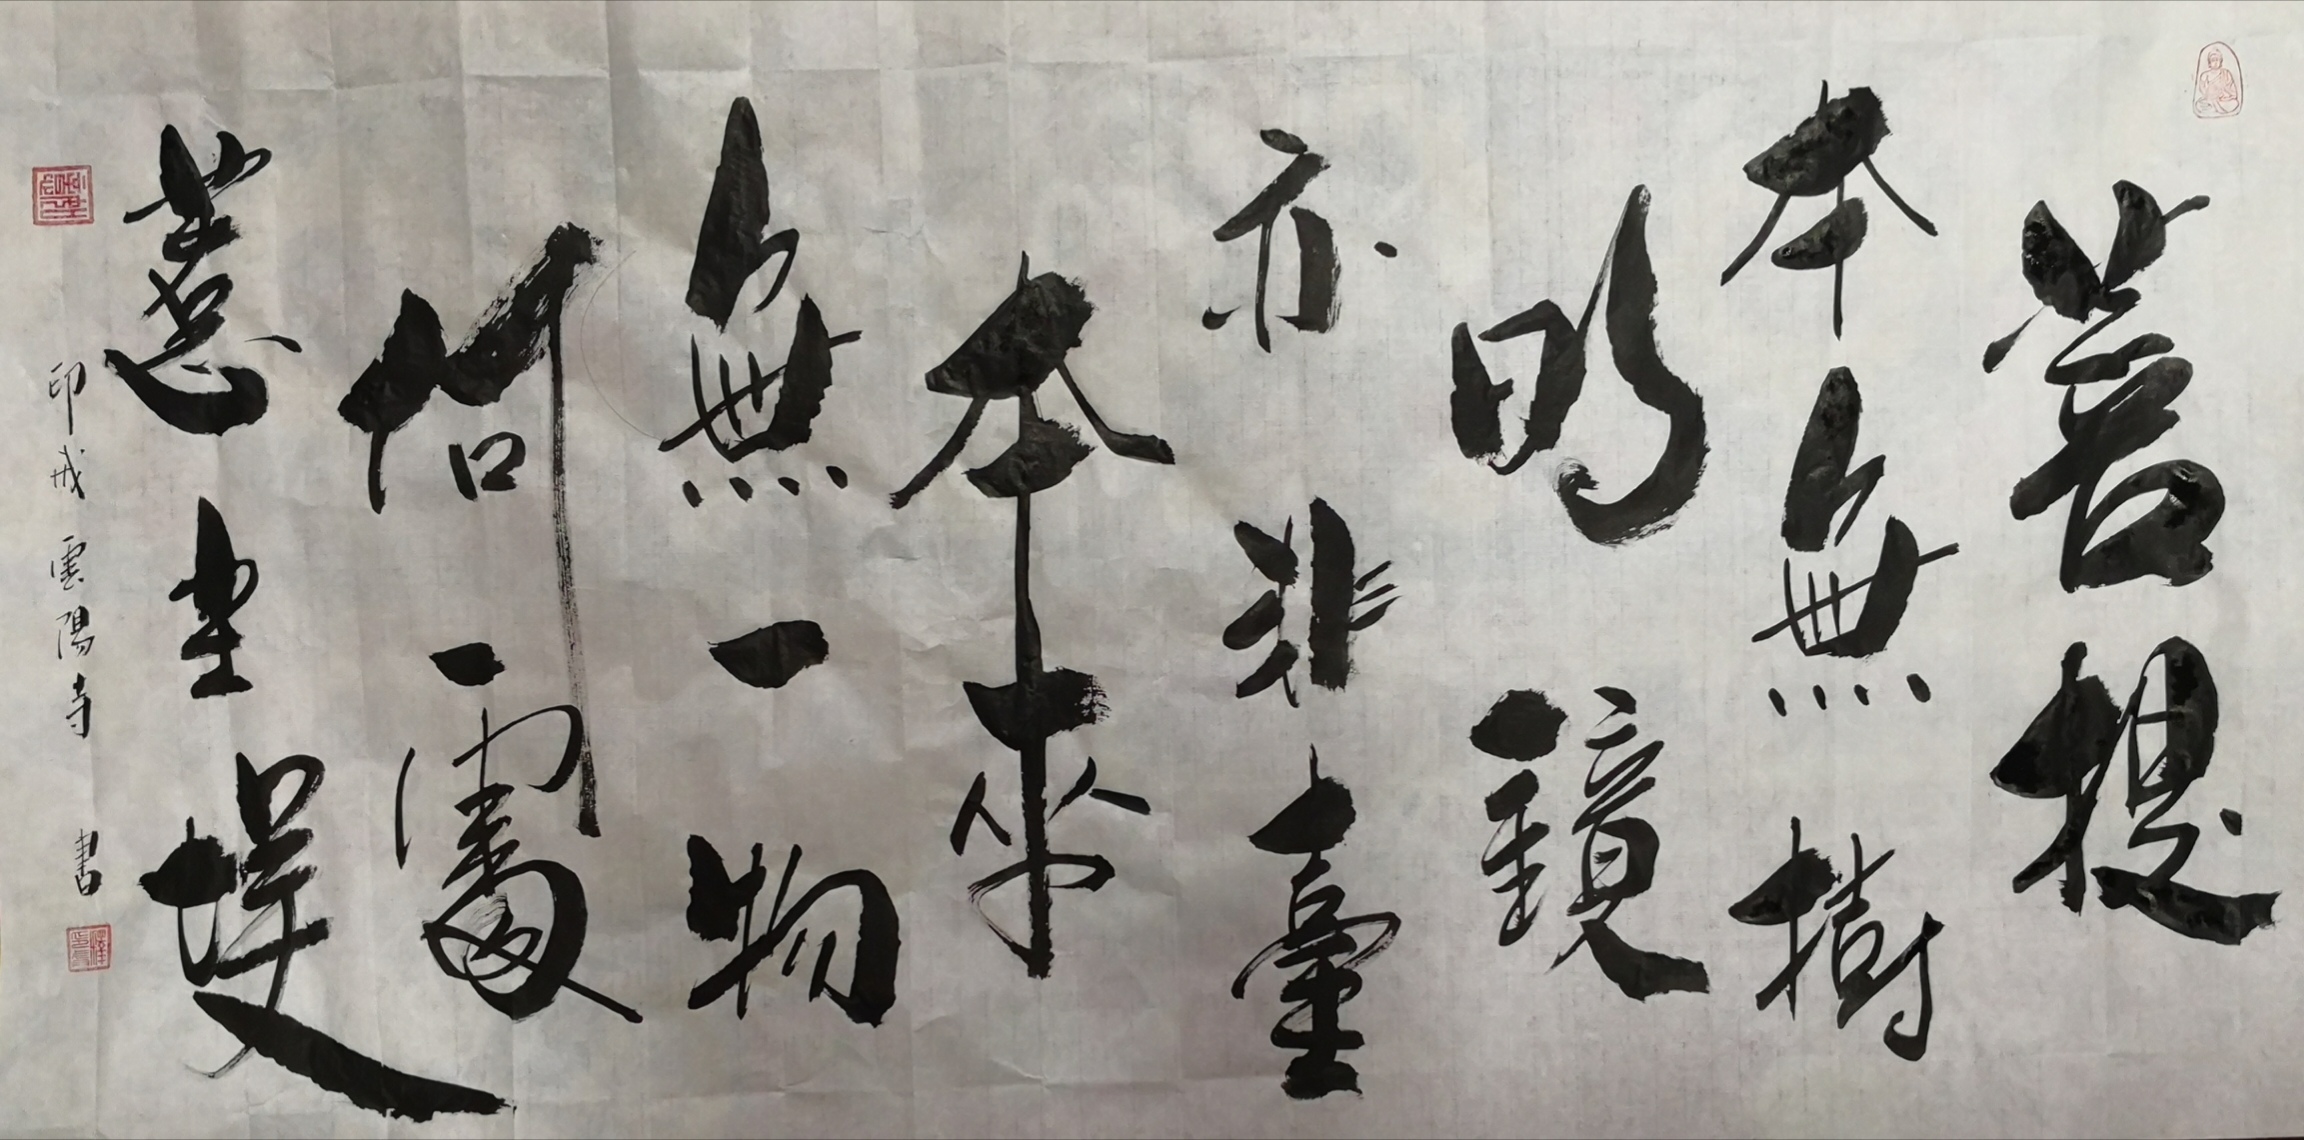 菩提
本無樹
明鏡
亦非臺
本來
無一物
何處
惹塵埃
印戒雲陽寺書